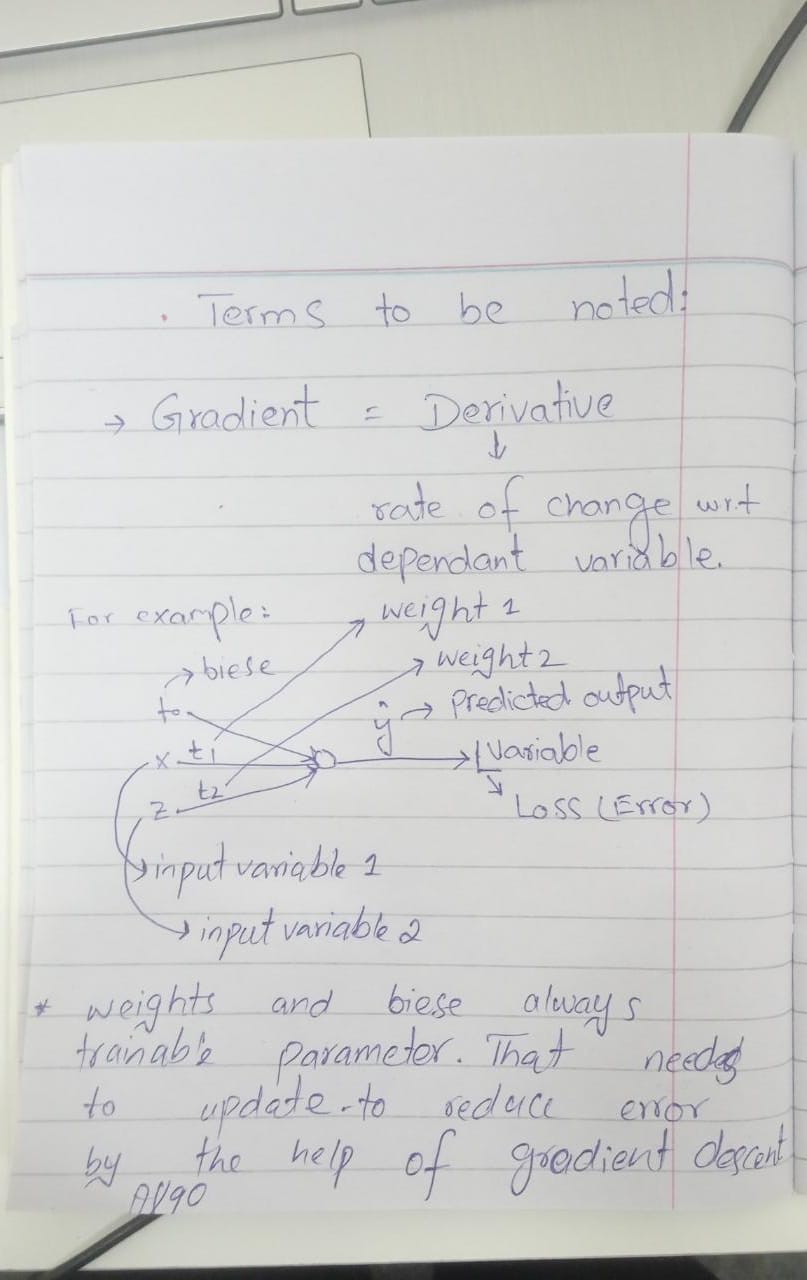 . Terms to be noted:
→ Gradient = Derivative
↓
rate of change w.r.t
dependant variable.
For example:
weight 1
→ biese
weight 2
to
ŷ → Predicted output
x t1
Variable
z t2
Loss (Error)
input variable 1
input variable 2
* weights and biese always
trainable parameter. That needs
to update. to reduce error
by the help of gradient descent